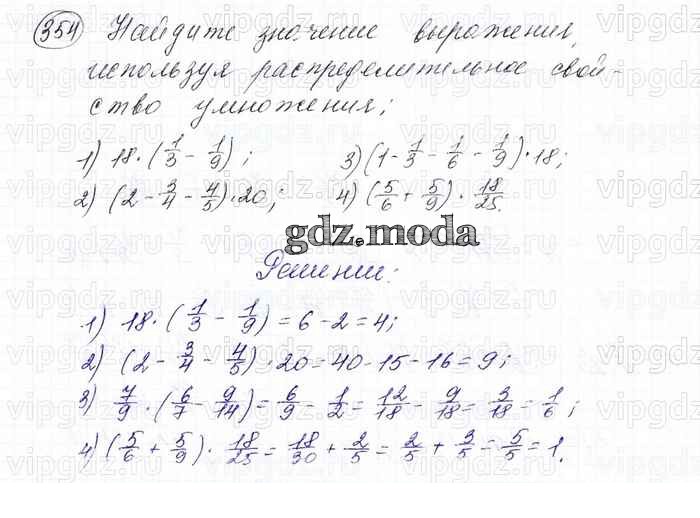 354 Найдите значение выражения,
используя распределительное свой-
ство умножения:
1) 18·(1/3 - 1/9);
3) (1 - 1/3 - 1/6 - 1/9)·18;
2) (2 - 3/4 - 4/5)·20;
4) (5/6 + 5/9)·18/25.
gdz.moda
Решение:
1) 18·(1/3 - 1/9) = 6 - 2 = 4;
2) (2 - 3/4 - 4/5)·20 = 40 - 15 - 16 = 9;
3) 7/9·(6/7 - 9/14) = 6/9 - 1/2 = 12/18 - 9/18 = 3/18 = 1/6;
4) (5/6 + 5/9)·18/25 = 18/30 + 2/5 = 2/5 + 3/5 = 5/5 = 1.
vipgdz.ru